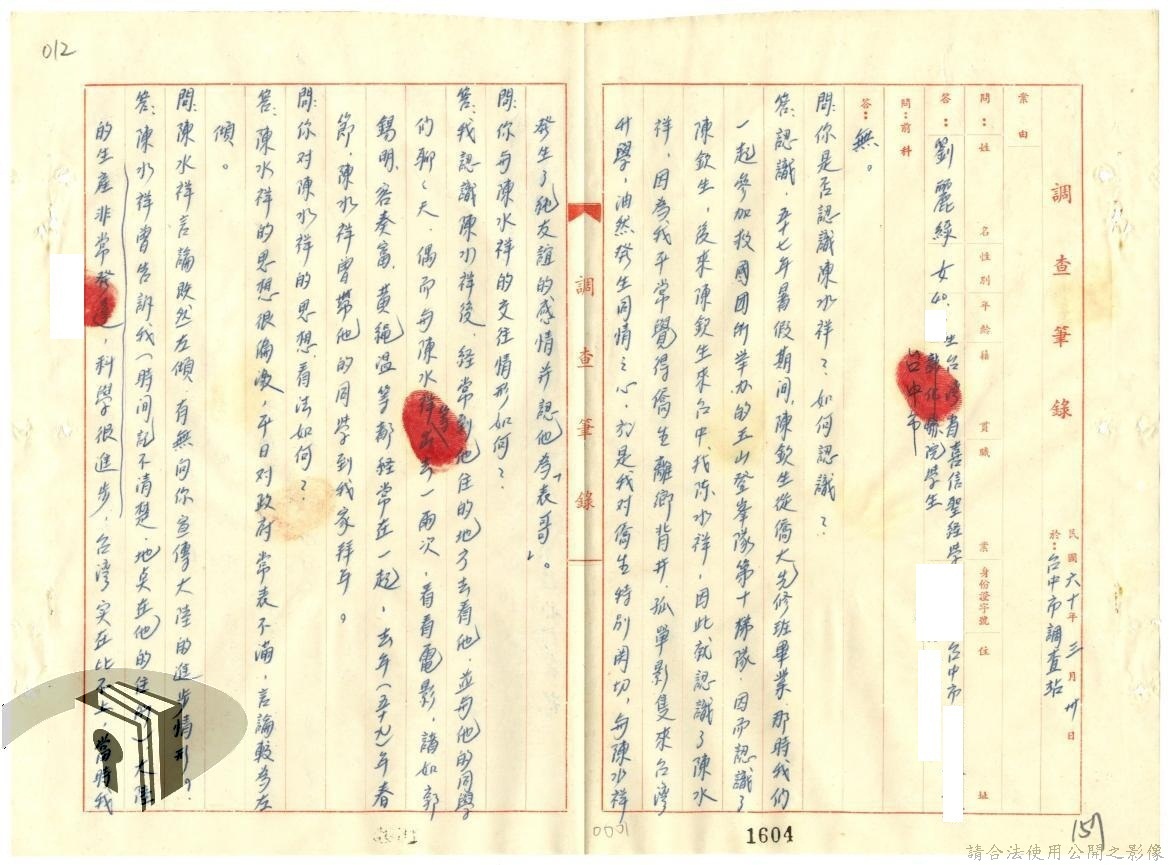 012
調查筆錄
民國六十年三月卅日
於：台中市調查站
案由
問：姓名性別年齡籍貫職業身份證字號住址
答：劉麗綠 女 40. 生 台灣省 喜信聖經學院學生 台中市 台中市
問：前科
答：無。
問：你是否認識陳水祥？如何認識？
答：認識，五十七年暑假期間，陳欽生從僑大先修班畢業，那時我们
一起參加救國团所举办的玉山登峯隊第十梯隊，因而認識了
陳欽生，後來陳欽生來台中找陈水祥，因此就認識了陳水
祥，因為我平常覺得僑生離鄉背井，孤單影隻來台灣
升學，油然發生同情之心，於是我对僑生特別関切，与陳水祥
調查筆錄
發生了純友誼的感情并認他為「表哥」。
問：你与陳水祥的交往情形如何？
答：我認識陳水祥後，經常到他住的地方去看他，並与他的同學
们聊々天，偶而与陳水祥等去一兩次，看看電影，諸如郭
錫明、客奏富、黃繩温等都經常在一起，去年（五十九）年春
節，陳水祥曾帶他的同學到我家拜年。
問：你对陳水祥的思想看法如何？
答：陳水祥的思想很偏激，平日对政府常表不滿，言論較為左
傾。
問：陳水祥言論既然左傾，有無向你宣傳大陸的進步情形？
答：陳水祥曾告訴我（時間記不清楚，地点在他的住所）大陸
的生產非常發達，科學很進步，台灣实在比不上，當時我
0001
1604
157
請合法使用公開之影像